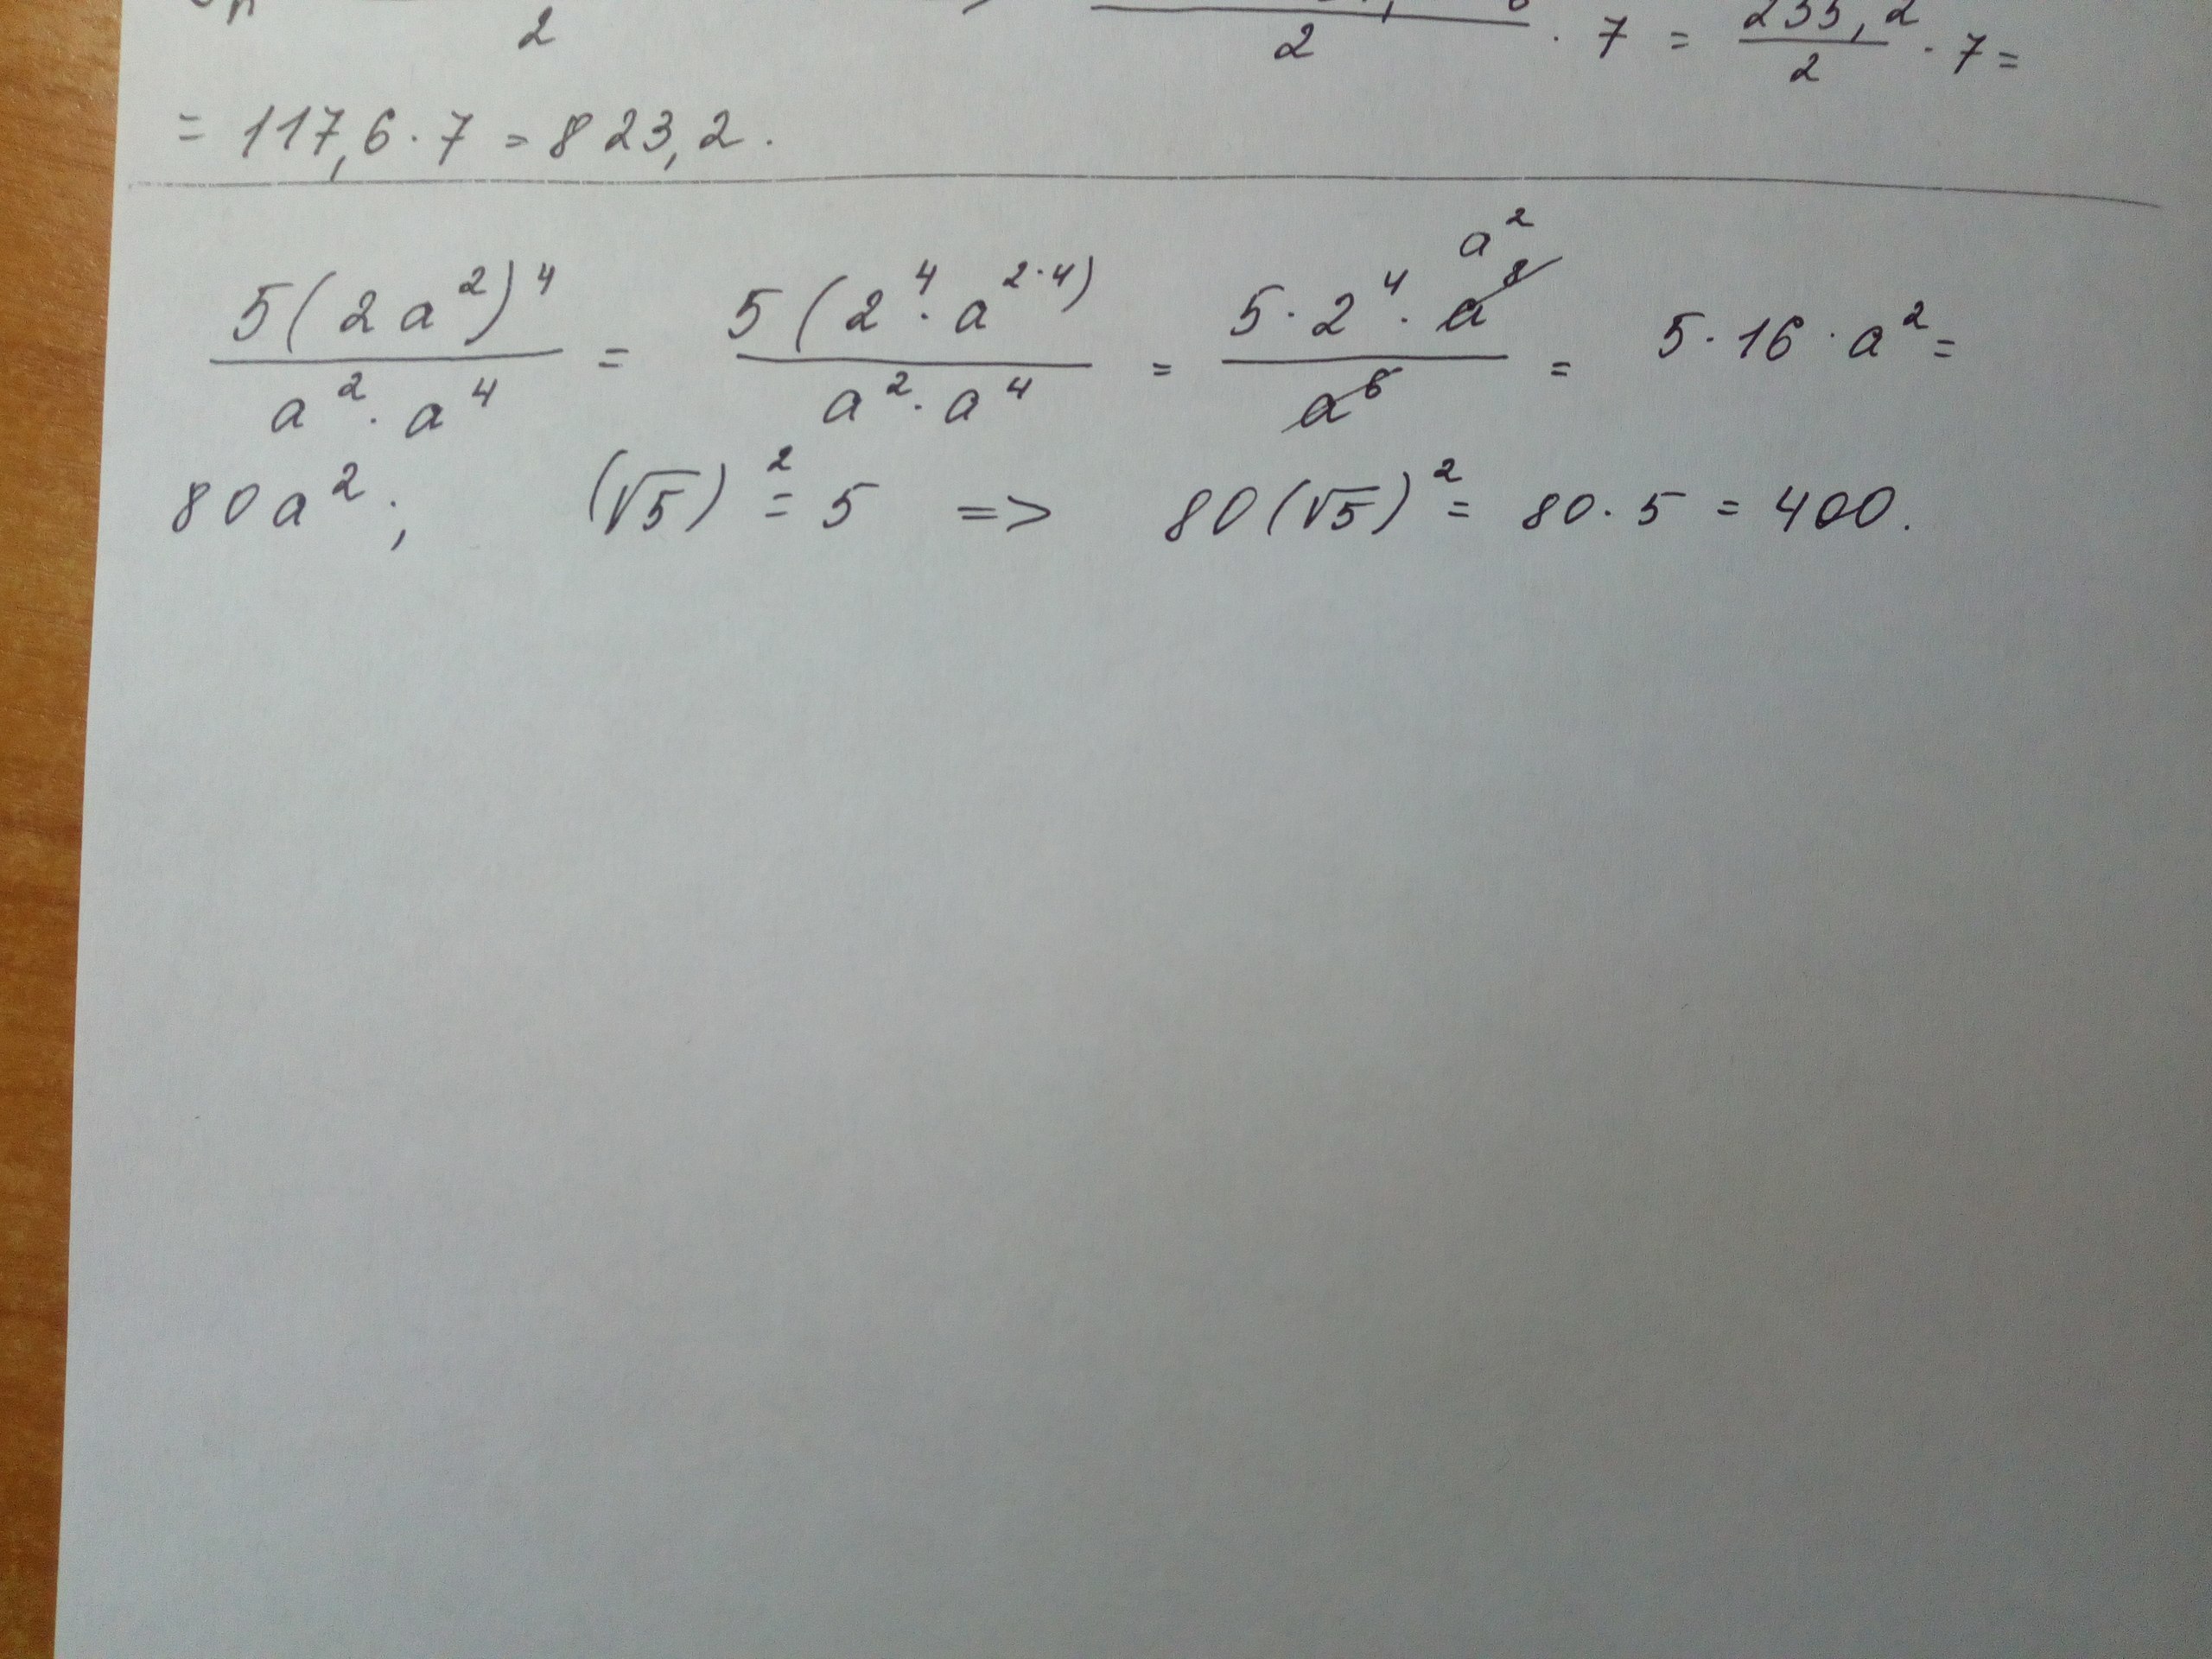 2 2 · 7 = 235,2 / 2 · 7 =
= 117,6 · 7 = 823,2.
5(2a²)⁴ / a² · a⁴ = 5(2⁴ · a²·⁴) / a² · a⁴ = 5 · 2⁴ · a⁸ a² / a⁶ = 5 · 16 · a² =
80a²; (√5)² = 5 => 80(√5)² = 80 · 5 = 400.